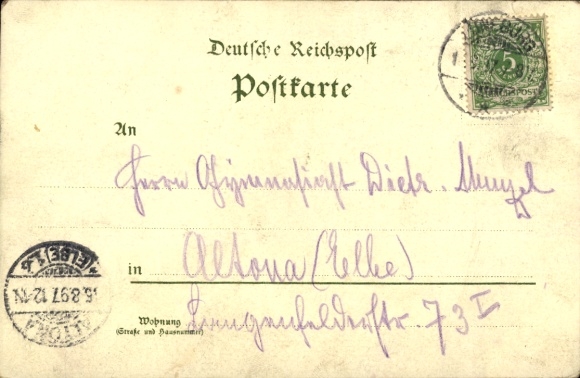 Deutsche Reichspost
Postkarte
5
REICHSPOST
An
Herrn Gymnasiast Dietr. Menzel
in Altona (Elbe)
Wohnung
(Straße und Hausnummer)
Langenfelderstr. 73 I
ALTONA
(ELBE) 1
5.8.97.12-1N